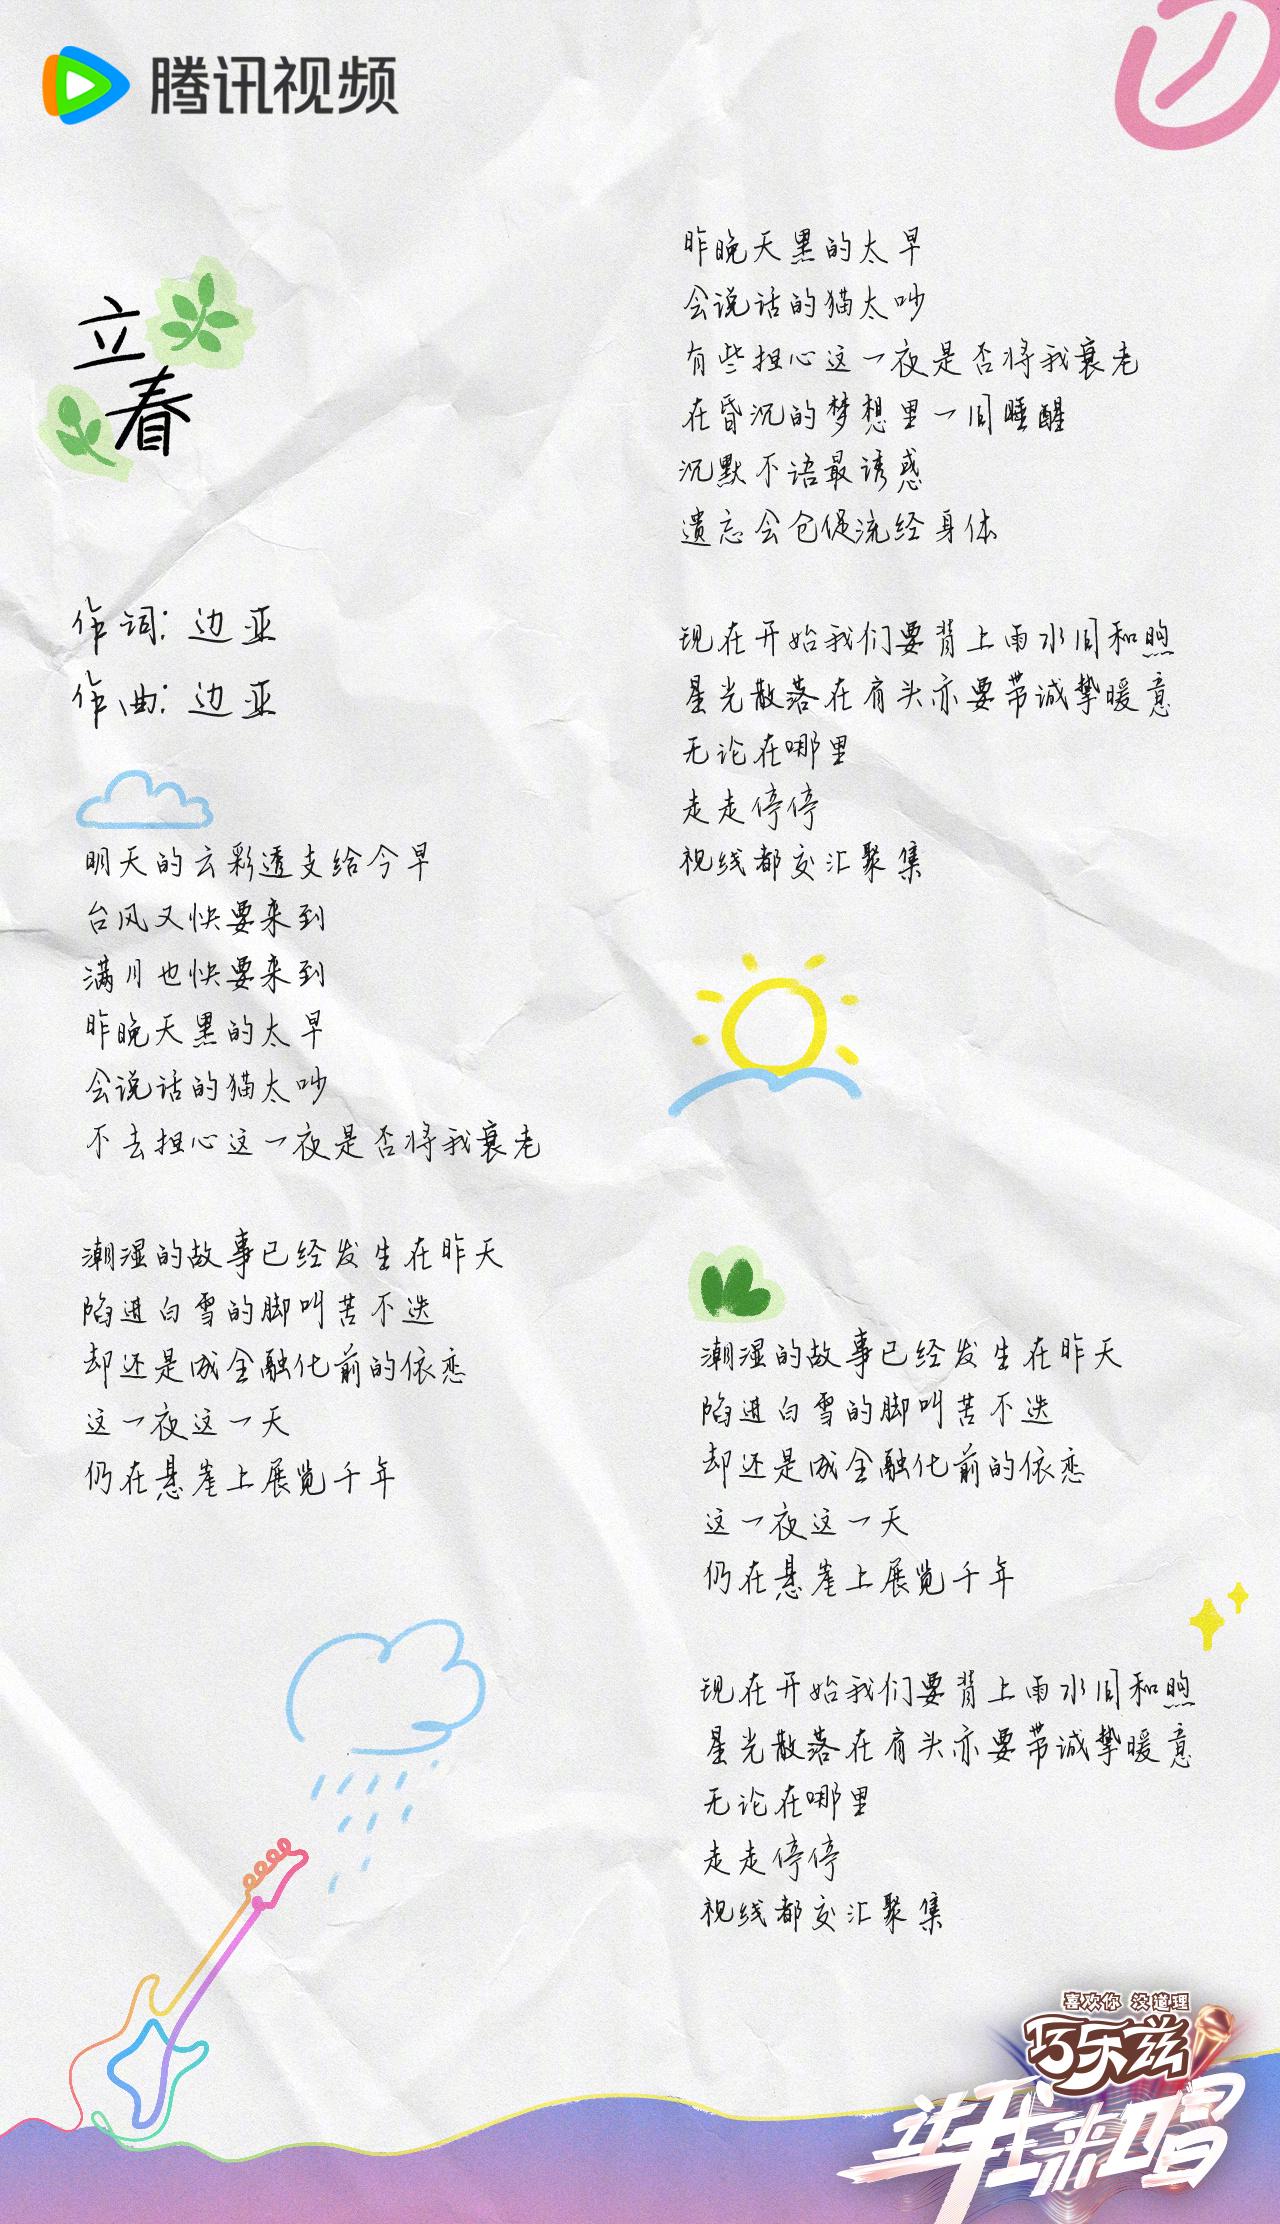 腾讯视频
立春
作词：边亚
作曲：边亚
明天的云彩透支给今早
台风又快要来到
满月也快要来到
昨晚天黑的太早
会说话的猫太吵
不去担心这一夜是否将我衰老
潮湿的故事已经发生在昨天
陷进白雪的脚叫苦不迭
却还是成全融化前的依恋
这一夜这一天
仍在悬崖上展览千年
昨晚天黑的太早
会说话的猫太吵
有些担心这一夜是否将我衰老
在昏沉的梦想里一同睡醒
沉默不语最诱惑
遗忘会仓促流经身体
现在开始我们要背上雨水同和煦
星光散落在肩头亦要带诚挚暖意
无论在哪里
走走停停
视线都交汇聚集
潮湿的故事已经发生在昨天
陷进白雪的脚叫苦不迭
却还是成全融化前的依恋
这一夜这一天
仍在悬崖上展览千年
现在开始我们要背上雨水同和煦
星光散落在肩头亦要带诚挚暖意
无论在哪里
走走停停
视线都交汇聚集
喜欢你 没道理
巧乐兹
斗我来唱